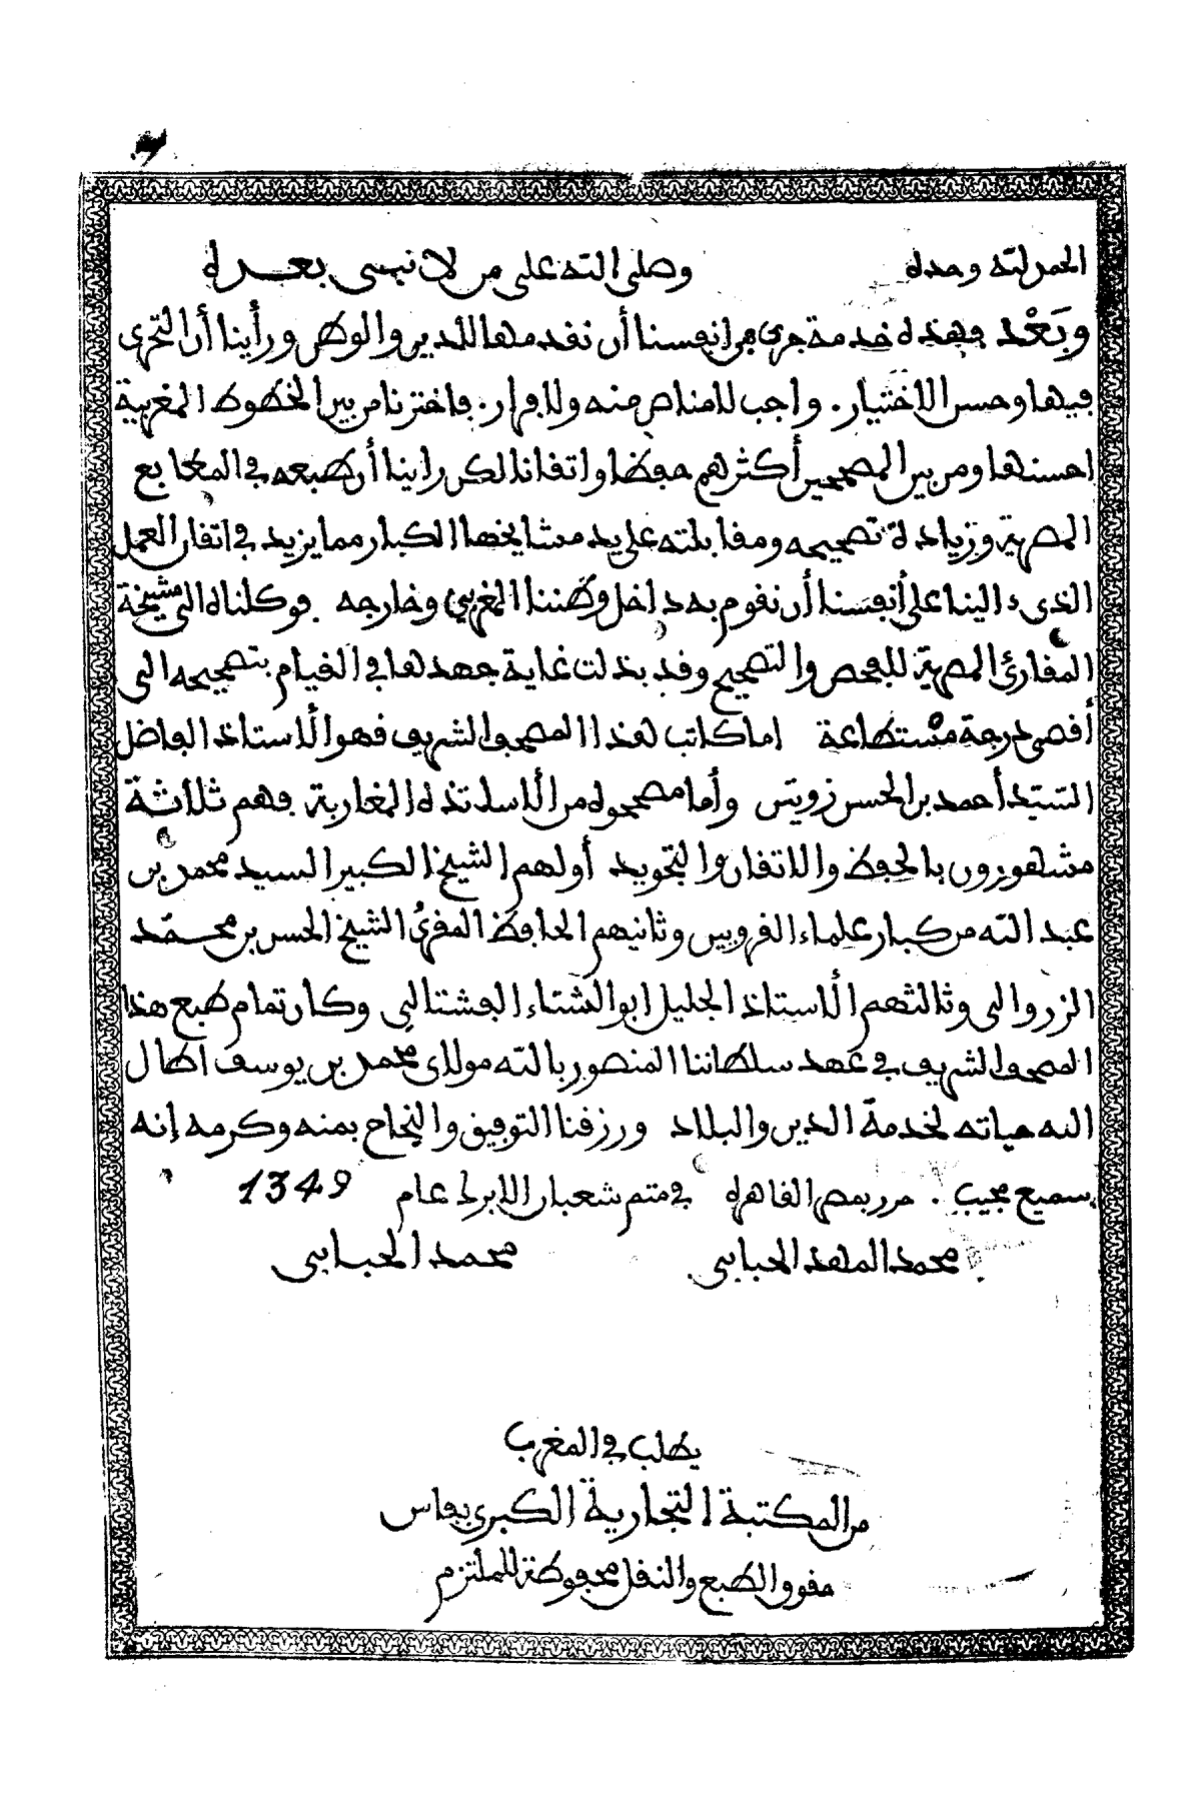 الحمد لله وحده وصلى الله على من لا نبي بعده
وبَعْد فهذه خدمة جرى من أنفسنا أن نقدمها للدين والوطن ورأينا أن التحرى
فيها وحسن الاختيار. واجب لا مناص منه ولا فرار. فاخترنا من بين الخطوط المغربية
احسنها ومن بين المصححين أكثرهم حفظا واتقانا لكن راينا أن طبعه في المطابع
المصرية وزيادة تصحيحه ومقابلته على يد مشايخها الكبار مما يزيد في اتقان العمل
الذى ءالينا على أنفسنا أن نقوم به داخل وطننا المغربي وخارجه فوكلناه الى مشيخة
المقارئ المصرية للفحص والتصحيح وقد بذلت غاية جهدها في القيام بتصحيحه الى
أقصى درجة مستطاعة اما كاتب هذا المصحف الشريف فهو الأستاذ الفاضل
السيد أحمد بن الحسن زويتن وأما مصححوه من الأساتذة المغاربة فهم ثلاثة
مشهورون بالحفظ والاتقان والتجويد أولهم الشيخ الكبير السيد محمد بن
عبد الله من كبار علماء القرويين وثانيهم الحافظ المقرئ الشيخ الحسن بن محمّد
الزروالى وثالثهم الأستاذ الجليل ابو الشتاء الفشتالي وكان تمام طبع هذا
المصحف الشريف في عهد سلطاننا المنصور بالله مولاى محمد بن يوسف اطال
الله حياته لخدمة الدين والبلاد ورزقنا التوفيق والنجاح بمنه وكرمه إنه
سميع مجيب. حرر بمصر القاهرة في متم شعبان الابرك عام 1349
محمد المهد الحبابي محمد الحبابي
يطلب في المغرب
من المكتبة التجارية الكبرى بفاس
حقوق الطبع والنقل محفوظة للملتزم